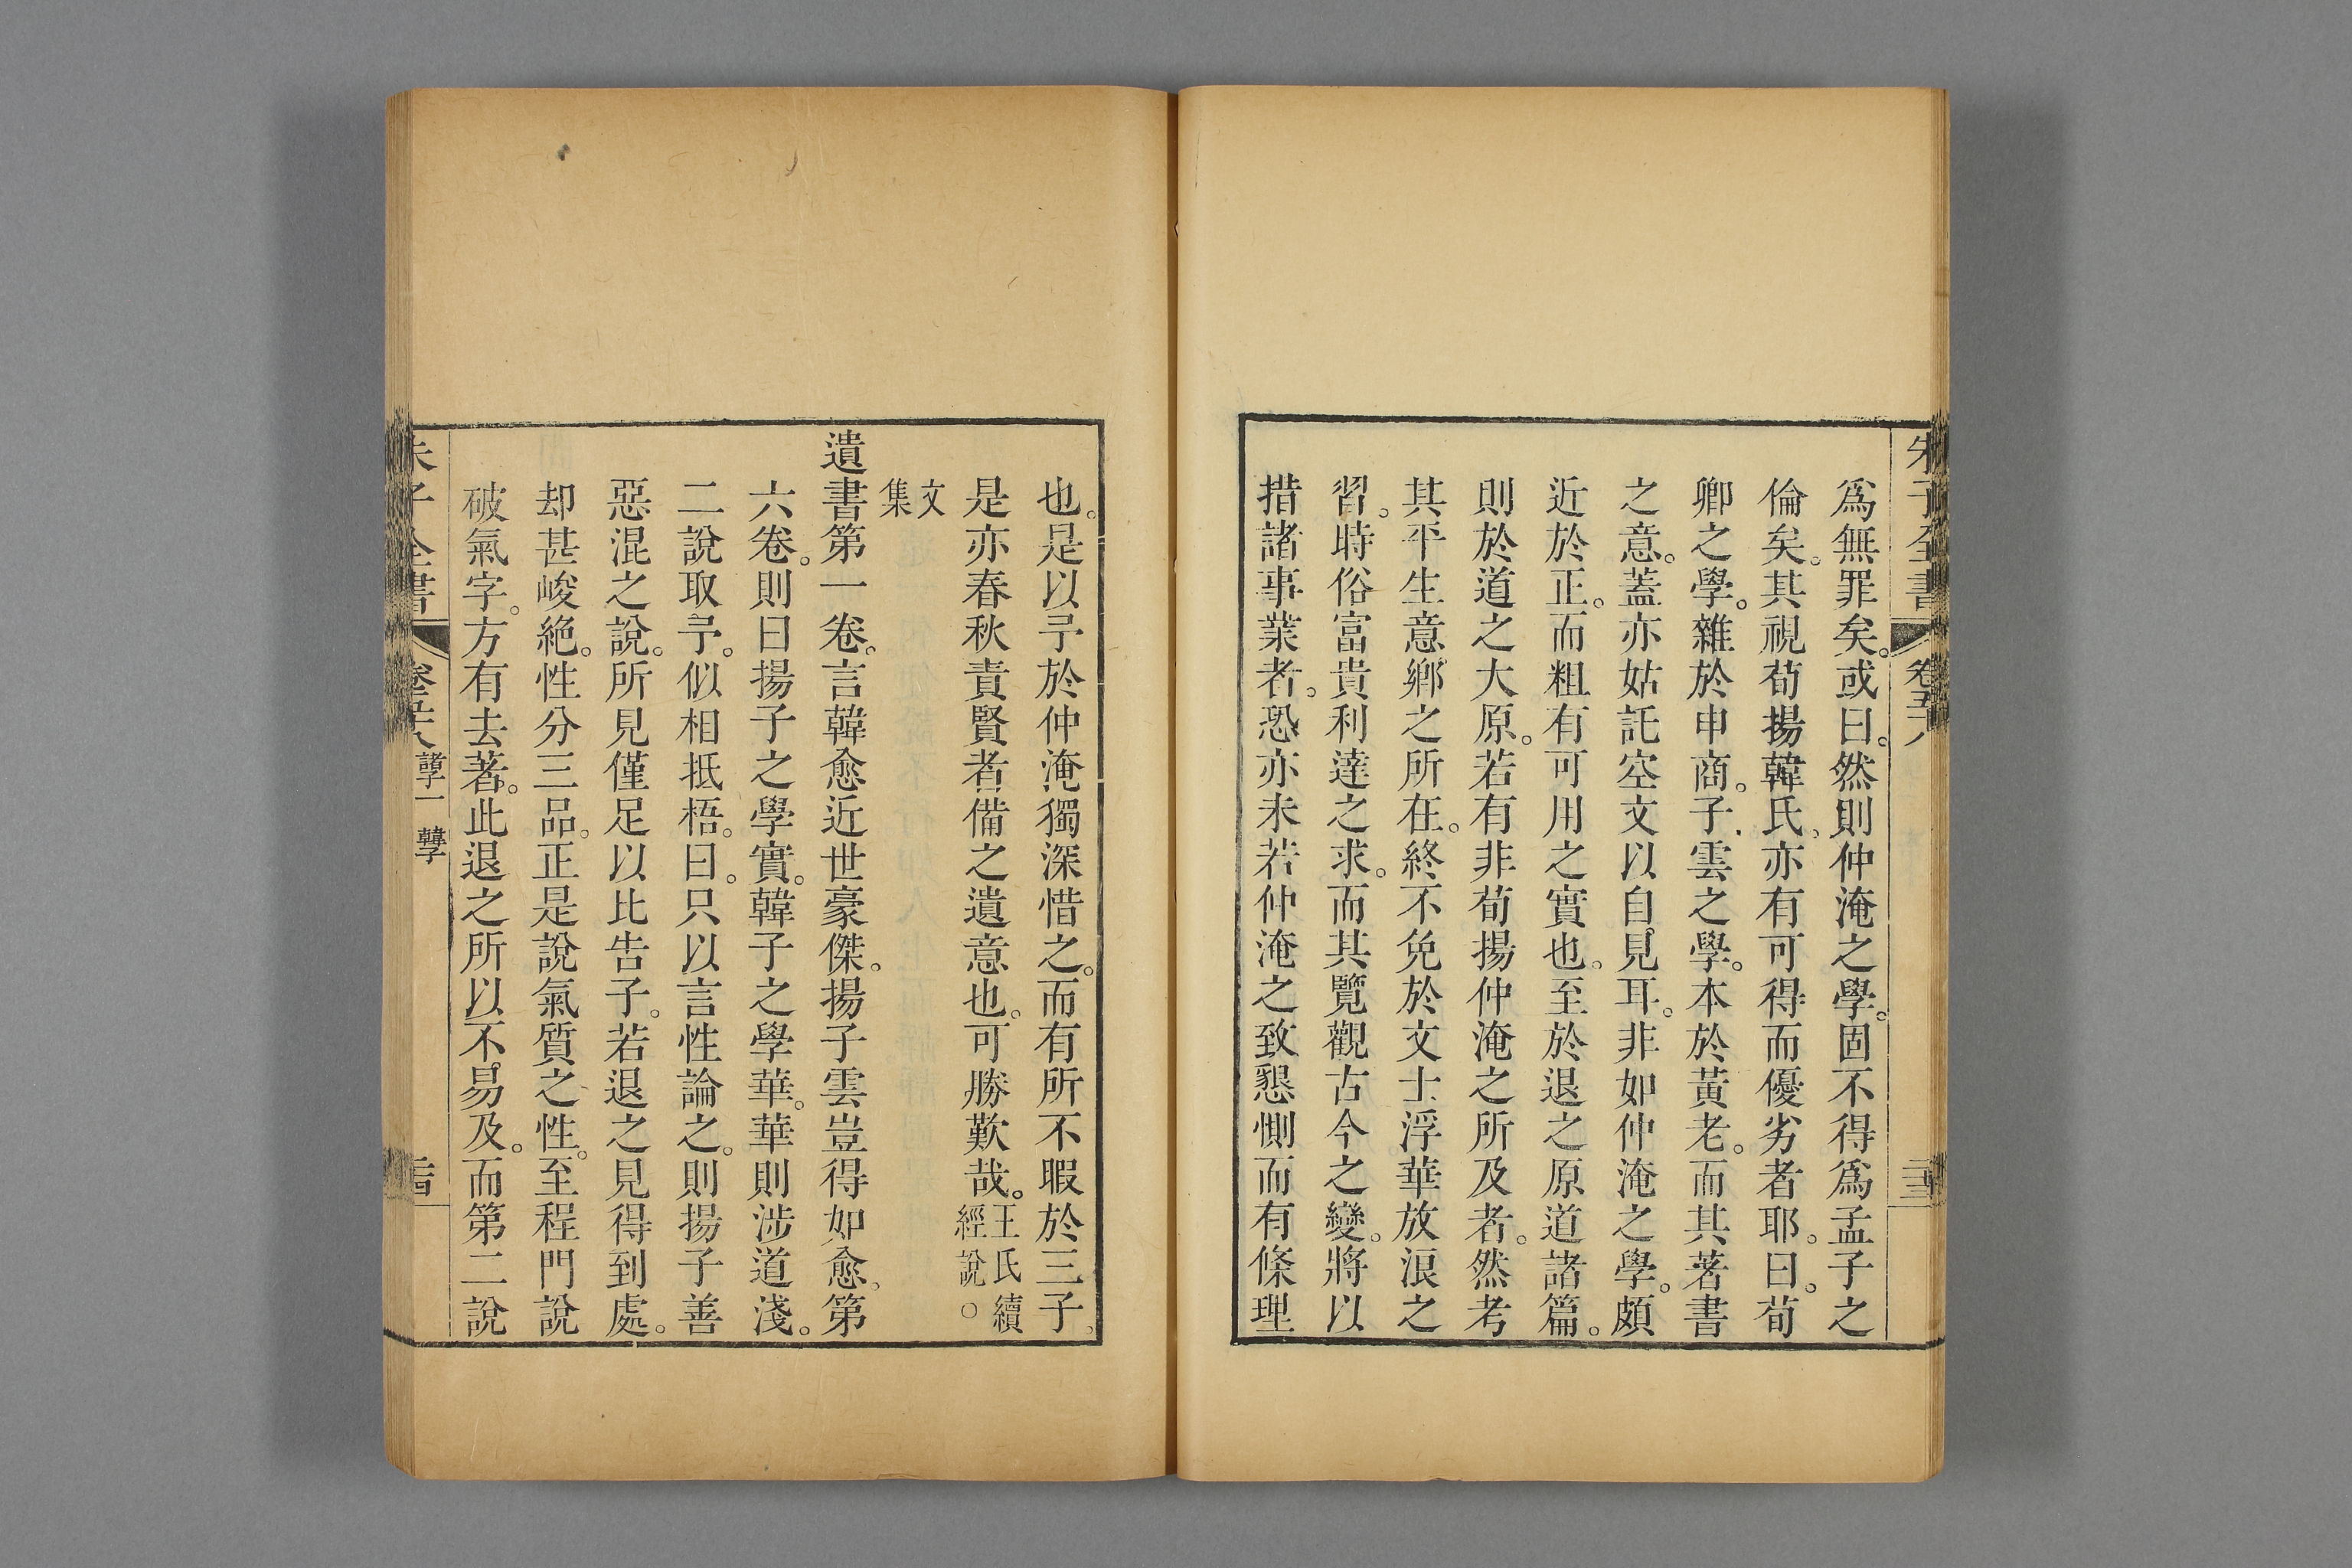 朱子全書 卷五十八 二十三
爲無罪矣。或曰。然則仲淹之學。固不得爲孟子之
倫矣。其視荀揚韓氏。亦有可得而優劣者耶。曰。荀
卿之學。雜於申商。子雲之學。本於黃老。而其著書
之意。蓋亦姑託空文以自見耳。非如仲淹之學。頗
近於正。而粗有可用之實也。至於退之原道諸篇。
則於道之大原。若有非荀揚仲淹之所及者。然考
其平生意鄉之所在。終不免於文士浮華放浪之
習。時俗富貴利達之求。而其覽觀古今之變。將以
措諸事業者。恐亦未若仲淹之致懇惻而有條理
也。是以予於仲淹獨深惜之。而有所不暇於三子。
是亦春秋責賢者備之遺意也。可勝歎哉。王氏續
經說。○
文
集
遺書第一卷。言韓愈近世豪傑。揚子雲豈得如愈。第
六卷。則曰揚子之學實。韓子之學華。華則涉道淺。
二說取予。似相抵梧。曰。只以言性論之。則揚子善
惡混之說。所見僅足以比告子。若退之見得到處。
却甚峻絕。性分三品。正是說氣質之性。至程門說
破氣字。方有去著。此退之所以不易及。而第二說
朱子全書 卷五十八 諸子一 韓子 二十四